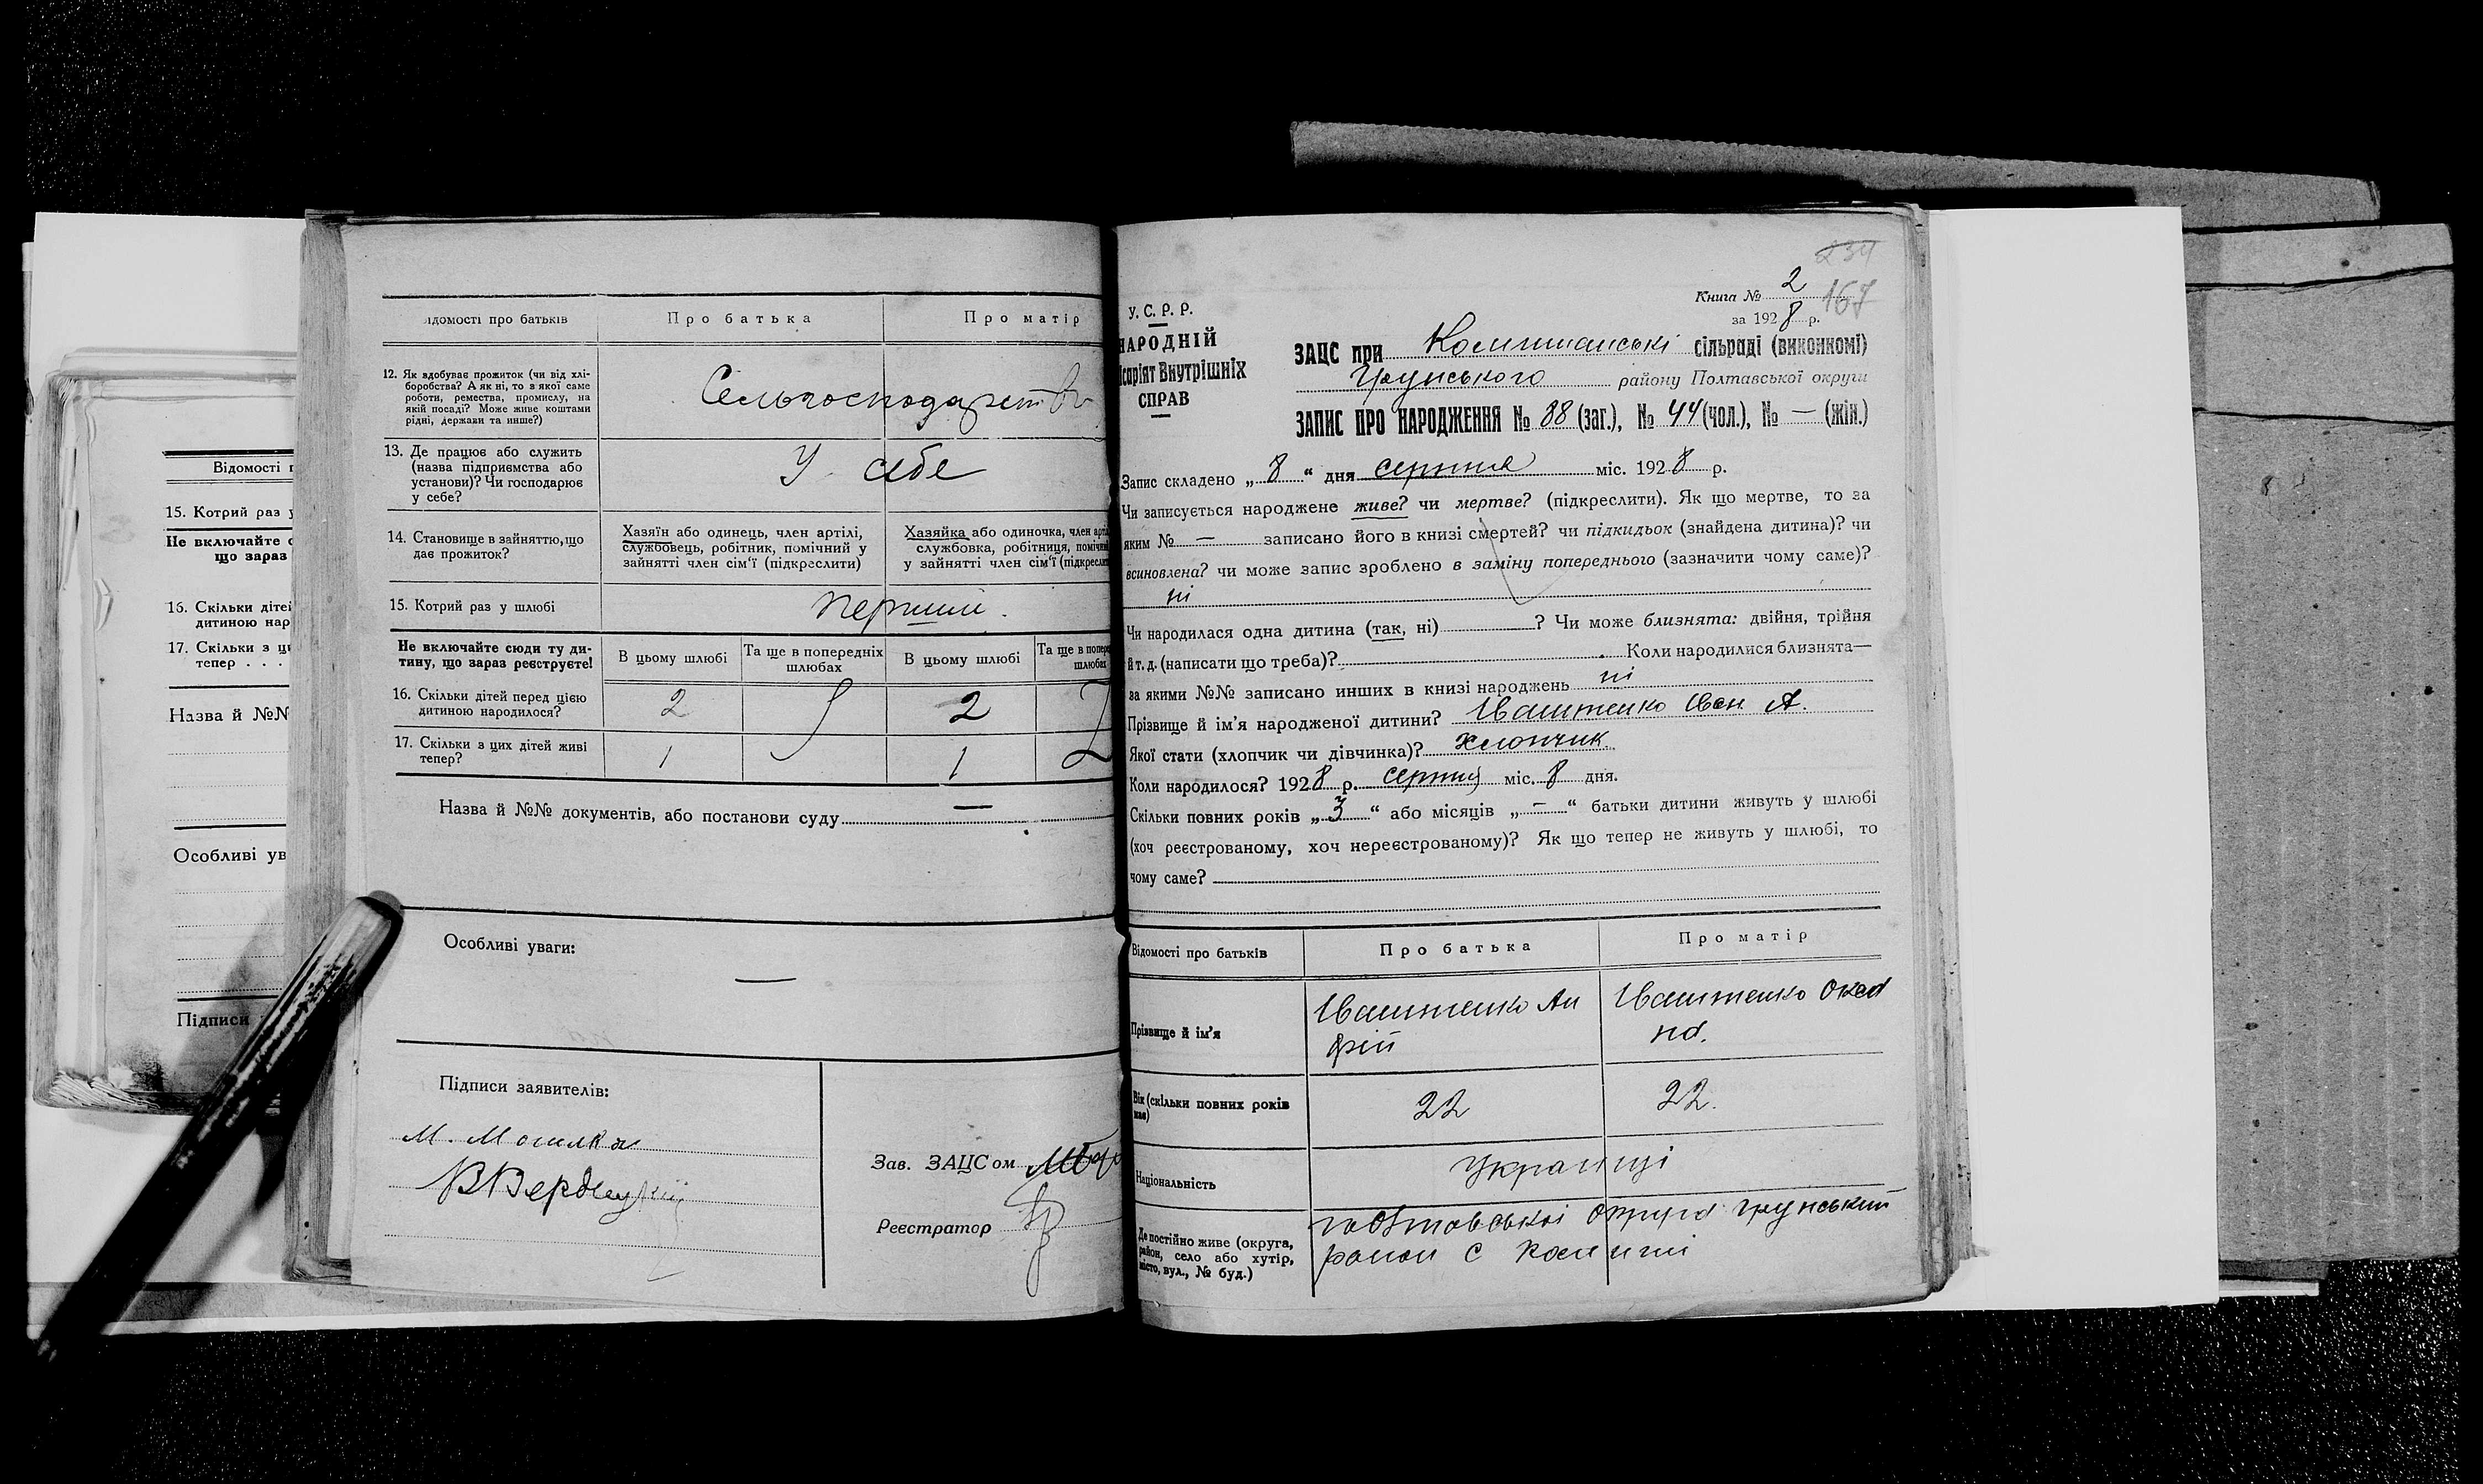 Відомості п
15. Котрий раз у
Не включайте с
що зараз
16. Скільки дітей
дитиною нар
17. Скільки з ци
тепер . . .
Назва й №№
Особливі ув
Підписи
ідомості про батьків
Про батька
Про матір
12. Як здобуває прожиток (чи від хлі-
боробства? А як ні, то з якої саме
роботи, ремества, промислу, на
якій посаді? Може живе коштами
рідні, держави та инше?)
Сельгосподарство
13. Де працює або служить
(назва підприємства або
установи)? Чи господарює
у себе?
У себе
14. Становище в зайняттю, що
дає прожиток?
Хазяїн або одинець, член артілі,
службовець, робітник, помічний у
зайнятті член сім'ї (підкреслити)
Хазяйка або одиночка, член арті
службовка, робітниця, помічни
у зайнятті член сім'ї (підкресли
15. Котрий раз у шлюбі
перший.
Не включайте сюди ту ди-
тину, що зараз реєструєте!
В цьому шлюбі
Та ще в попередніх
шлюбах
В цьому шлюбі
Та ще в попере
шлюбах
16. Скільки дітей перед цією
дитиною народилося?
2
2
17. Скільки з цих дітей живі
тепер?
1
1
Назва й №№ документів, або постанови суду —
Особливі уваги:
—
Підписи заявителів:
М. Могилка
Зав. ЗАЦСом
Реєстратор
234
167
У. С. Р. Р.
НАРОДНІЙ
ісаріят Внутрішніх
СПРАВ
Книга № 2
за 1928 р.
ЗАЦС при Комишанські сільраді (виконкомі)
Грунського району Полтавської округи
ЗАПИС ПРО НАРОДЖЕННЯ № 88 (заг.), № 44 (чол.), № — (жін.)
Запис складено „ 8 “ дня серпня міс. 1928 р.
Чи записується народжене живе? чи мертве? (підкреслити). Як що мертве, то за
яким № — записано його в книзі смертей? чи підкидьок (знайдена дитина)? чи
всиновлена? чи може запис зроблено в заміну попереднього (зазначити чому саме)?
ні
Чи народилася одна дитина (так, ні) ? Чи може близнята: двійня, трійня
й т. д. (написати що треба)? Коли народилися близнята—
за якими №№ записано инших в книзі народжень ні
Прізвище й ім'я народженої дитини? Іващенко Іван А.
Якої стати (хлопчик чи дівчинка)? хлопчик.
Коли народилося? 1928 р. серпня міс. 8 дня.
Скільки повних років „ 3 “ або місяців „ — “ батьки дитини живуть у шлюбі
(хоч реєстрованому, хоч нереєстрованому)? Як що тепер не живуть у шлюбі, то
чому саме?
Відомості про батьків
Про батька
Про матір
Прізвище й ім'я
Іващенко Ан
дрій
Іващенко
Вік (скільки повних років
має)
22
22.
Національність
Українці
Де постійно живе (округа,
район, село або хутір,
місто, вул., № буд.)
Полтавської округи Грунський
район с Комиші